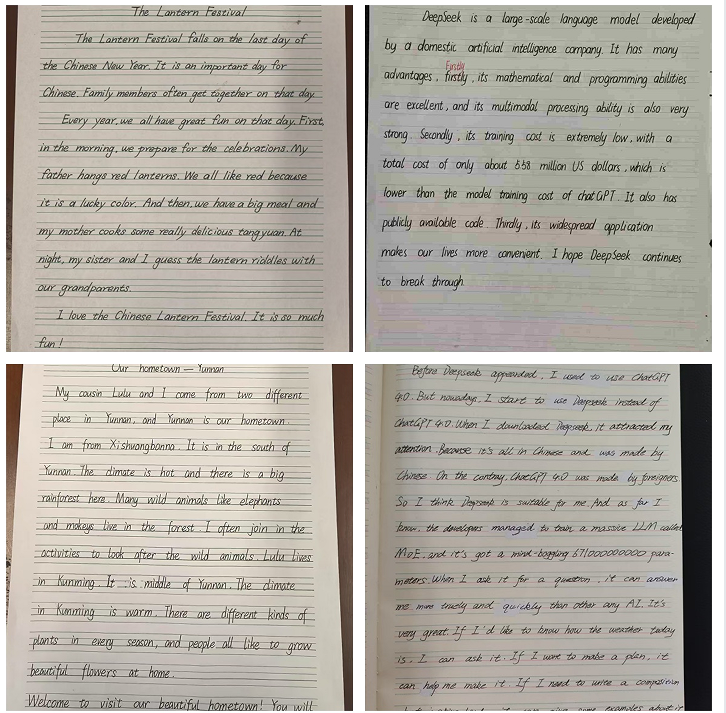 The Lantern Festival
The Lantern Festival falls on the last day of
the Chinese New Year. It is an important day for
Chinese. Family members often get together on that day.
Every year, we all have great fun on that day. First,
in the morning, we prepare for the celebrations. My
father hangs red lanterns. We all like red because
it is a lucky color. And then, we have a big meal and
my mother cooks some really delicious tangyuan. At
night, my sister and I guess the lantern riddles with
our grandparents.
I love the Chinese Lantern Festival. It is so much
fun!
DeepSeek is a large-scale language model developed
by a domestic artificial intelligence company. It has many
Firstly
advantages, firstly, its mathematical and programming abilities
are excellent, and its multimodal processing ability is also very
strong. Secondly, its training cost is extremely low, with a
total cost of only about 5.58 million US dollars, which is
lower than the model training cost of chatGPT. It also has
publicly available code. Thirdly, its widespread application
makes our lives more convenient. I hope DeepSeek continues
to break through
Our hometown — Yunnan
My cousin Lulu and I come from two different
place in Yunnan, and Yunnan is our hometown.
I am from Xishuangbanna. It is in the south of
Yunnan. The climate is hot and there is a big
rainforest here. Many wild animals like elephants
and mokeys live in the forest. I often join in the
activities to look after the wild animals. Lulu lives
in Kunming. It is middle of Yunnan. The climate
in Kunming is warm. There are different kinds of
plants in every season, and people all like to grow
beautiful flowers at home.
Welcome to visit our beautiful hometown! You will
Before Deepseek appeared, I used to use ChatGPT
4.0. But nowadays, I start to use Deepseek instead of
ChatGPT 4.0. When I downloaded Deepseek, it attracted my
attention. Because it's all in Chinese and was made by
Chinese. On the contray, ChatGPT 4.0 was made by foreigners.
So I think Deepseek is suitable for me. And as far I
know, the developers managed to train a massive LLM called
MoE, and it's got a mind-boggling 671000000000 para-
meters. When I ask it for a question, it can answer
me more truely and quickly than other any AI. It's
very great. If I'd like to know how the weather today
is, I can ask it. If I want to make a plan, it
can help me make it. If I need to write a composition
some examples about it